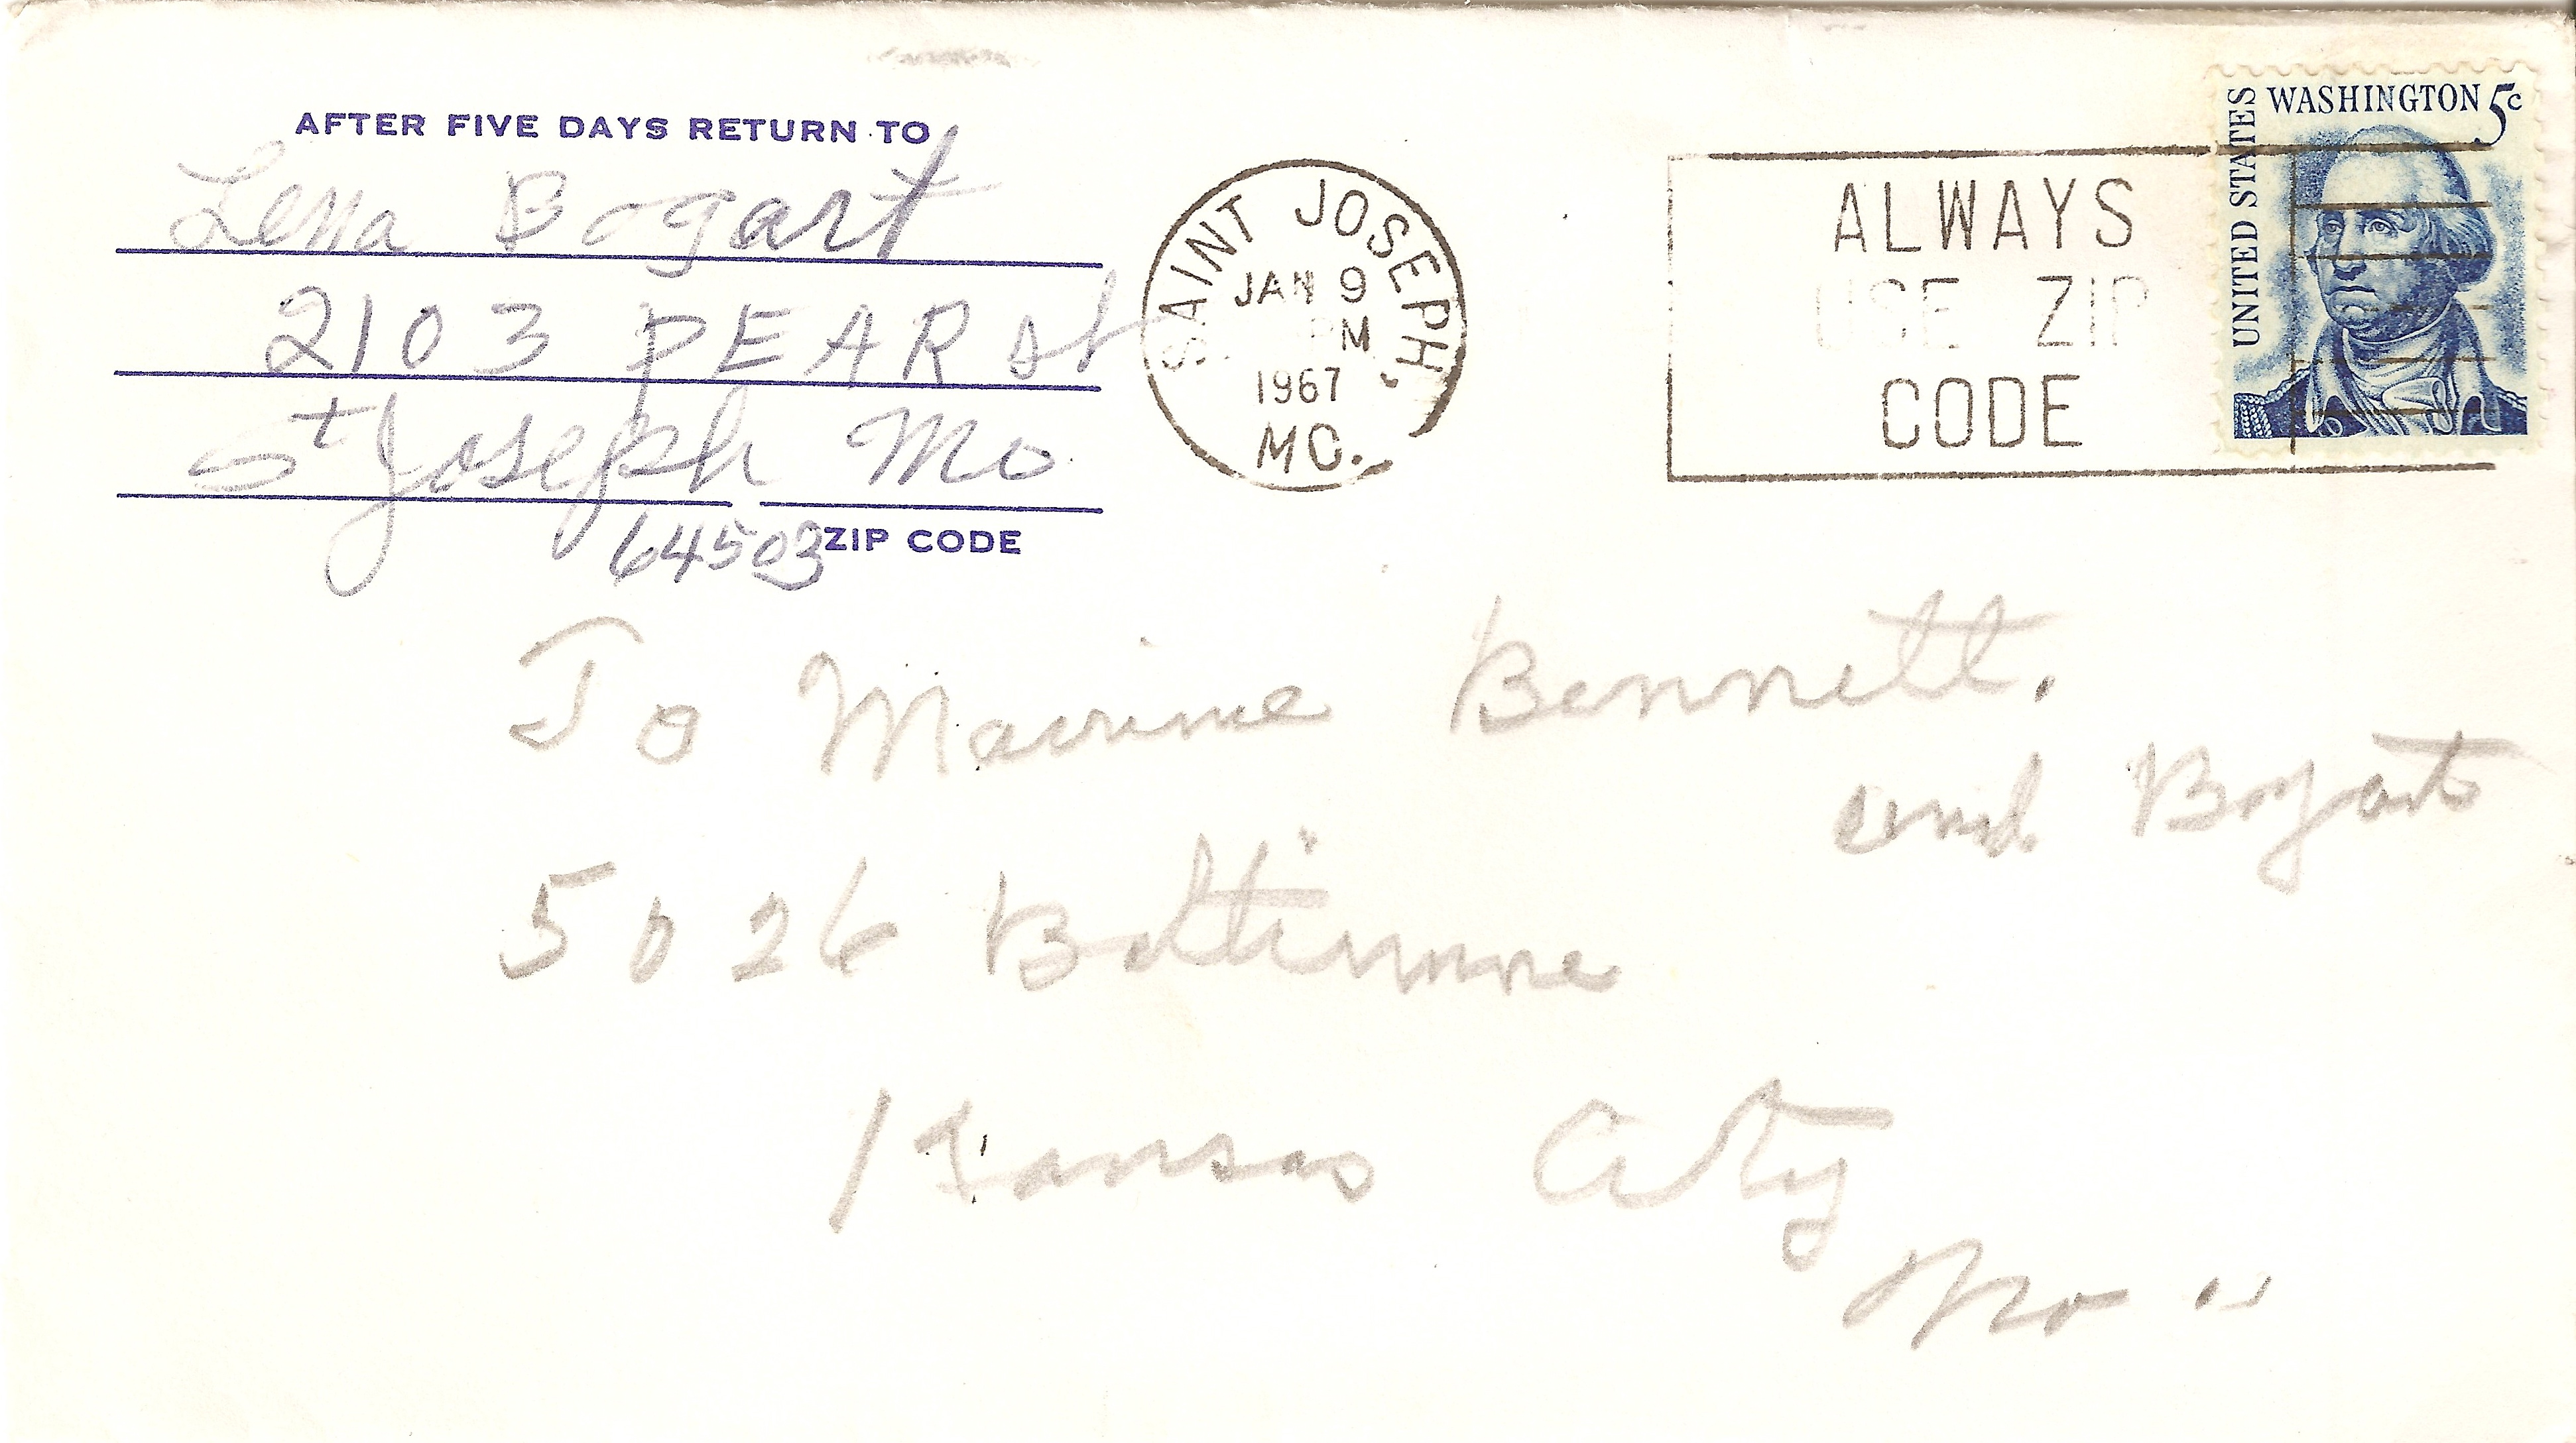 AFTER FIVE DAYS RETURN TO
Lena Bogart
2103 PEAR st
St Joseph Mo
64503 ZIP CODE
SAINT JOSEPH, MO.
JAN 9
PM
1967
ALWAYS
USE ZIP
CODE
UNITED STATES
WASHINGTON 5c
To Maxine Bennett.
and Bogart
5026 Baltimore
Kansas City
Mo